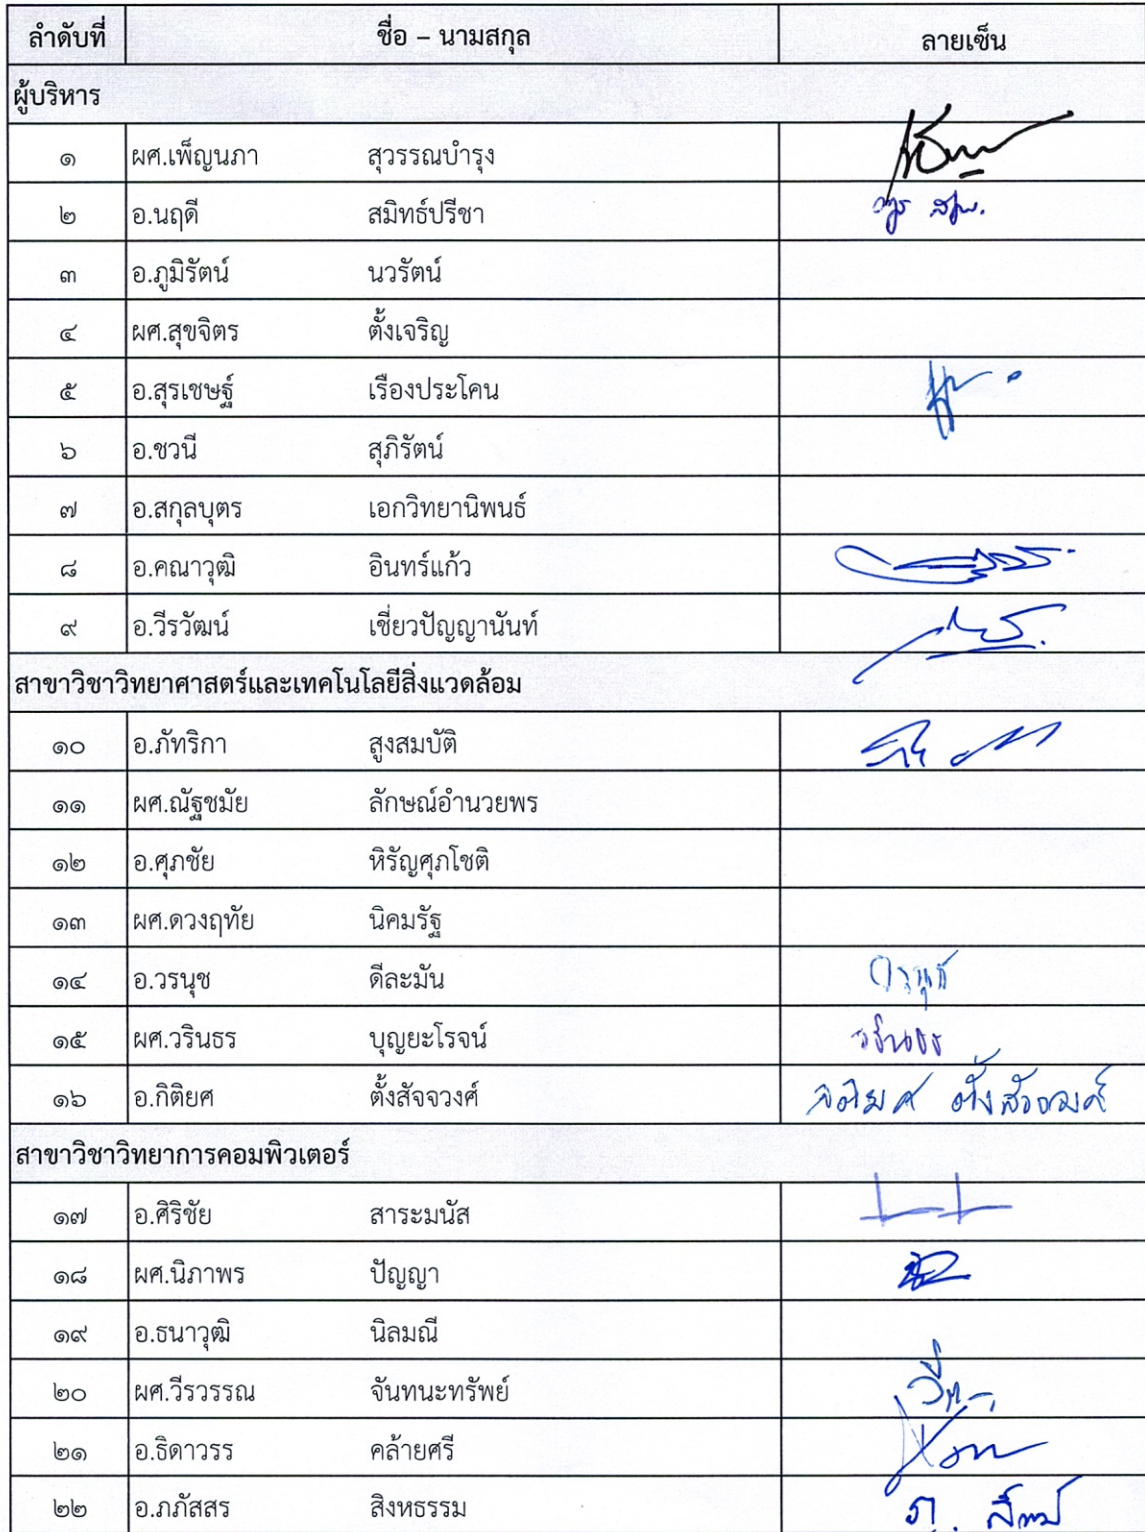 ลำดับที่ ชื่อ – นามสกุล ลายเซ็น
ผู้บริหาร
๑ ผศ.เพ็ญนภา สุวรรณบำรุง
๒ อ.นฤดี สมิทธ์ปรีชา
๓ อ.ภูมิรัตน์ นวรัตน์
๔ ผศ.สุขจิตร ตั้งเจริญ
๕ อ.สุรเชษฐ์ เรืองประโคน
๖ อ.ชวนี สุภิรัตน์
๗ อ.สกุลบุตร เอกวิทยานิพนธ์
๘ อ.คณาวุฒิ อินทร์แก้ว
๙ อ.วีรวัฒน์ เชี่ยวปัญญานันท์
สาขาวิชาวิทยาศาสตร์และเทคโนโลยีสิ่งแวดล้อม
๑๐ อ.ภัทริกา สูงสมบัติ
๑๑ ผศ.ณัฐชมัย ลักษณ์อำนวยพร
๑๒ อ.ศุภชัย หิรัญศุภโชติ
๑๓ ผศ.ดวงฤทัย นิคมรัฐ
๑๔ อ.วรนุช ดีละมัน วรนุช
๑๕ ผศ.วรินธร บุญยะโรจน์ วรินธร
๑๖ อ.กิติยศ ตั้งสัจจวงศ์ กิติยศ ตั้งสัจจวงศ์
สาขาวิชาวิทยาการคอมพิวเตอร์
๑๗ อ.ศิริชัย สาระมนัส
๑๘ ผศ.นิภาพร ปัญญา
๑๙ อ.ธนาวุฒิ นิลมณี
๒๐ ผศ.วีรวรรณ จันทนะทรัพย์
๒๑ อ.ธิดาวรร คล้ายศรี
๒๒ อ.ภภัสสร สิงหธรรม